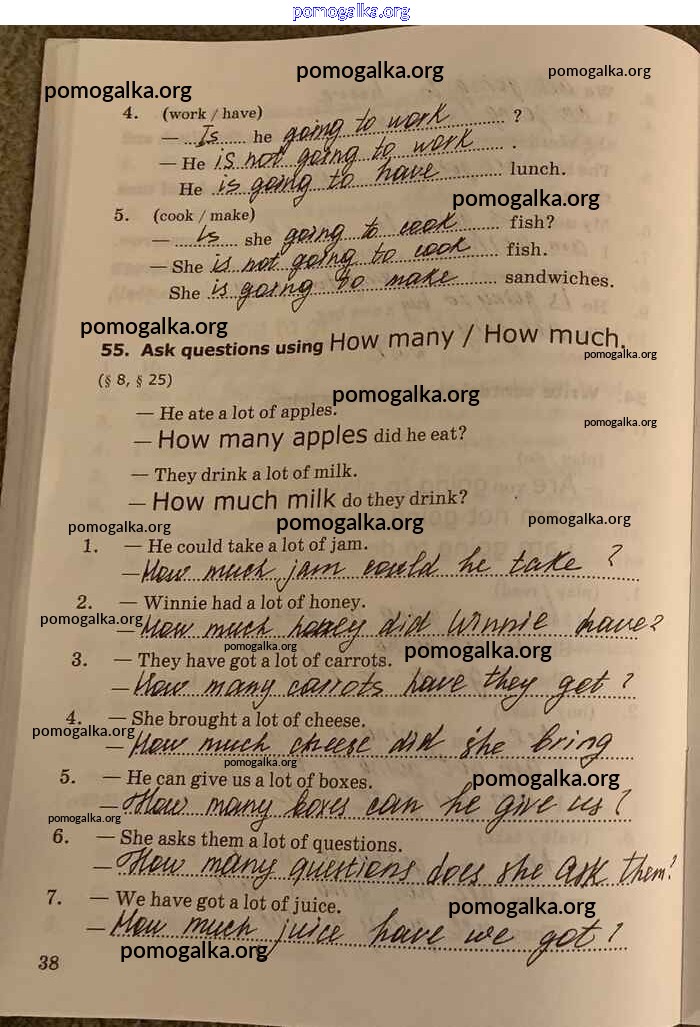 pomogalka.org
pomogalka.org
pomogalka.org
pomogalka.org
4. (work / have)
— Is he going to work ?
— He is not going to work .
He is going to have lunch.
pomogalka.org
5. (cook / make)
— Is she going to cook fish?
— She is not going to cook fish.
She is going to make sandwiches.
pomogalka.org
55. Ask questions using How many / How much.
pomogalka.org
(§ 8, § 25)
pomogalka.org
— He ate a lot of apples.
pomogalka.org
— How many apples did he eat?
— They drink a lot of milk.
— How much milk do they drink?
pomogalka.org pomogalka.org pomogalka.org
1. — He could take a lot of jam.
— How much jam could he take ?
2. — Winnie had a lot of honey.
pomogalka.org
— How much honey did Winnie have?
pomogalka.org pomogalka.org
3. — They have got a lot of carrots.
— How many carrots have they got ?
4. — She brought a lot of cheese.
pomogalka.org
— How much cheese did she bring
pomogalka.org
5. — He can give us a lot of boxes.
pomogalka.org
— How many boxes can he give us ?
pomogalka.org
6. — She asks them a lot of questions.
— How many questions does she ask them?
7. — We have got a lot of juice.
pomogalka.org
— How much juice have we got ?
pomogalka.org
38